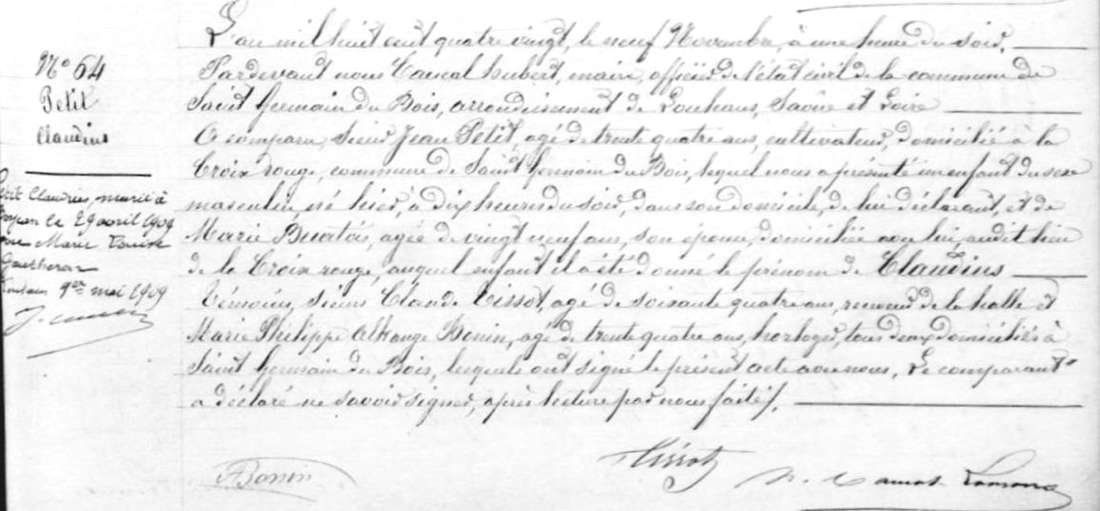 N° 64
Petit
Claudius
Petit Claudius, marié à
le 29 avril 1909
Marie Louise
Gautheron
Louhans 9 mai 1909
L'an mil huit cent quatre vingt, le neuf Novembre, à une heure du soir,
Pardevant nous Hubert, maire, officier de l'état civil de la commune de
Saint Germain du Bois, arrondissement de Louhans, Saône et Loire
A comparu, sieur Jean Petit, agé de trente quatre ans, cultivateur, domicilié à la
Croix rouge, commune de Saint Germain du Bois, lequel nous a présenté un enfant du sexe
masculin, né hier, à dix heures du soir, dans son domicile, de lui déclarant, et de
Marie agée de vingt neuf ans, son épouse, domiciliée avec lui, audit lieu
de la Croix rouge, auquel enfant il a été donné le prénom de Claudius
Témoins, sieurs Claude Tissot, agé de soixante quatre ans, receveur de la halle et
Marie Philippe Bonin, agé de trente quatre ans, horloger, tous deux domiciliés à
Saint Germain du Bois, lesquels ont signé le présent acte avec nous, Le comparant
a déclaré ne savoir signer, après lecture par nous faite.
Bonin
Tissot